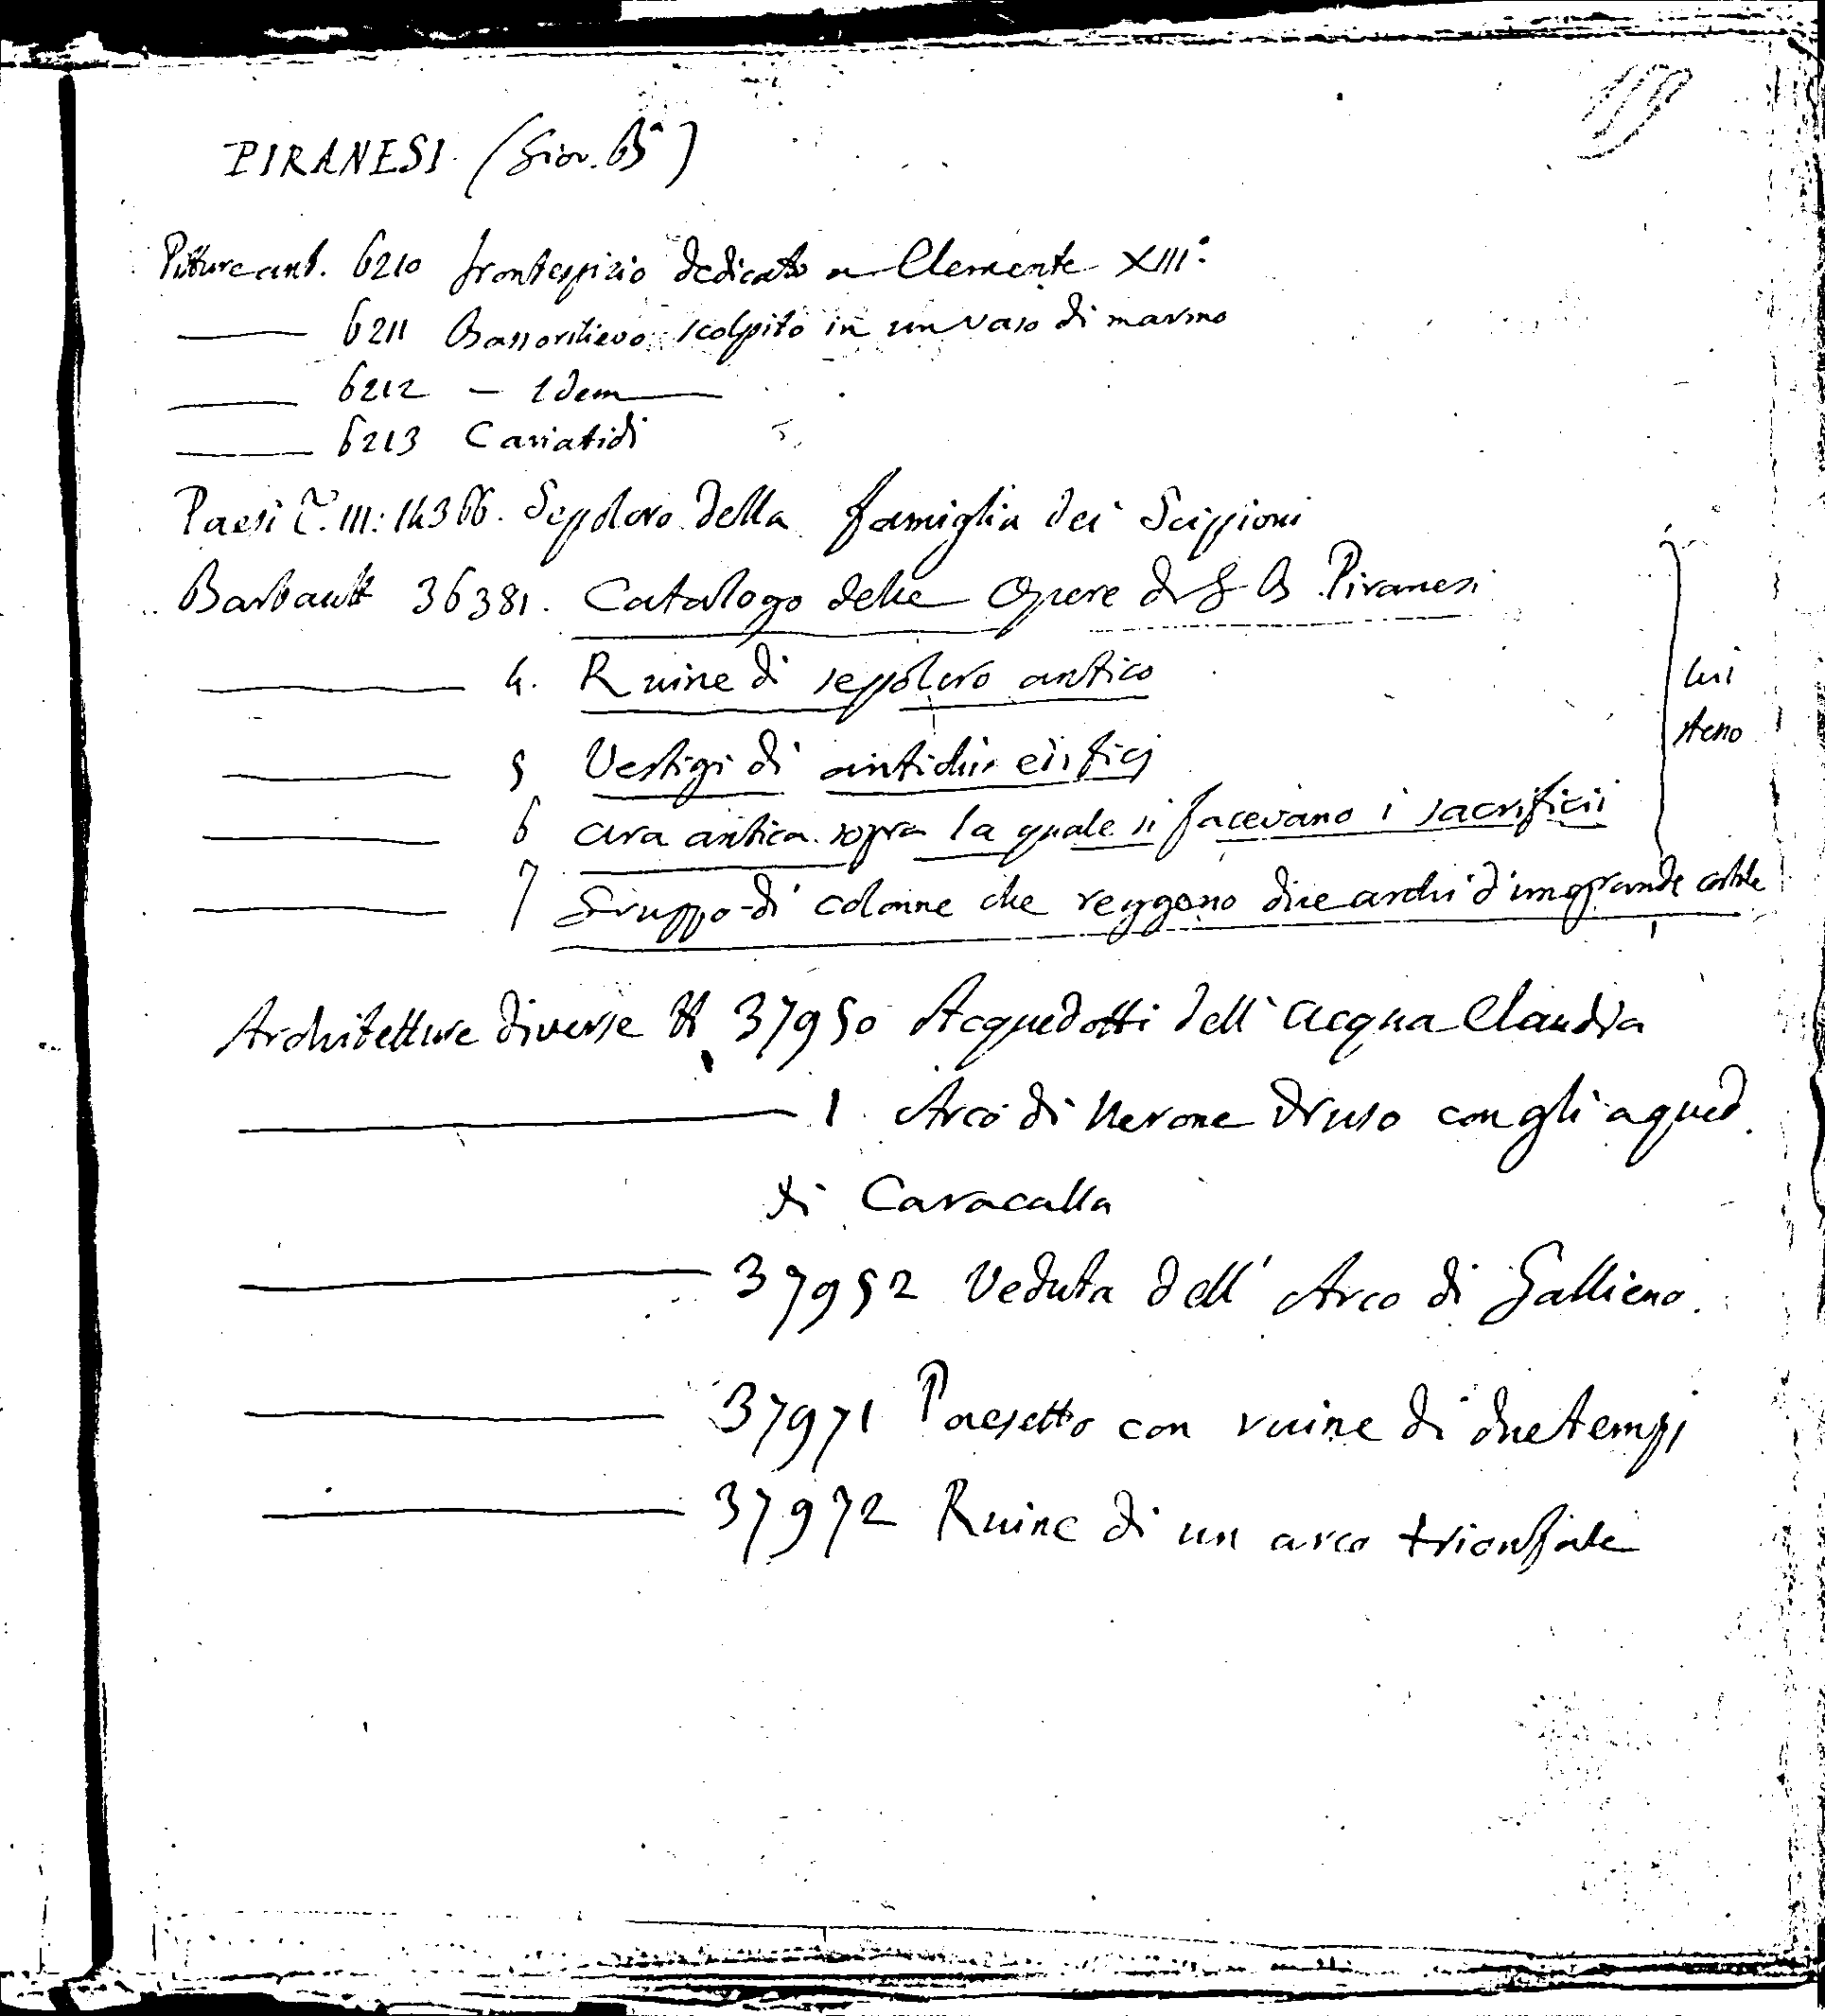 119
PIRANESI (Giov. Bª)
Pitture ant. 6210 frontespizio dedicato a Clemente XIII°
——— 6211 Bassorilievo scolpito in un vaso di marmo
——— 6212 — Idem ——
——— 6213 Cariatidi
Paesi T. III: 14366. Sepolcro della famiglia dei Scipioni
Barbault 36381. Catalogo delle Opere di G B Piranesi
——— 4. Ruine di sepolcro antico
lui
——— 5 Vestigi di antichi edifici
steno
——— 6 ara antica sopra la quale si facevano i sacrificii
——— 7 Gruppo di colonne che reggono due archi d'un grande cortile
Architetture diverse 37950 Acquedotti dell' acqua Claudia
——— 1 Arco di Nerone Druso con gli aqued.
di Caracalla
——— 37952 Veduta dell' Arco di Gallieno.
——— 37971 Paesetto con ruine di due tempi
——— 37972 Ruine di un arco trionfale